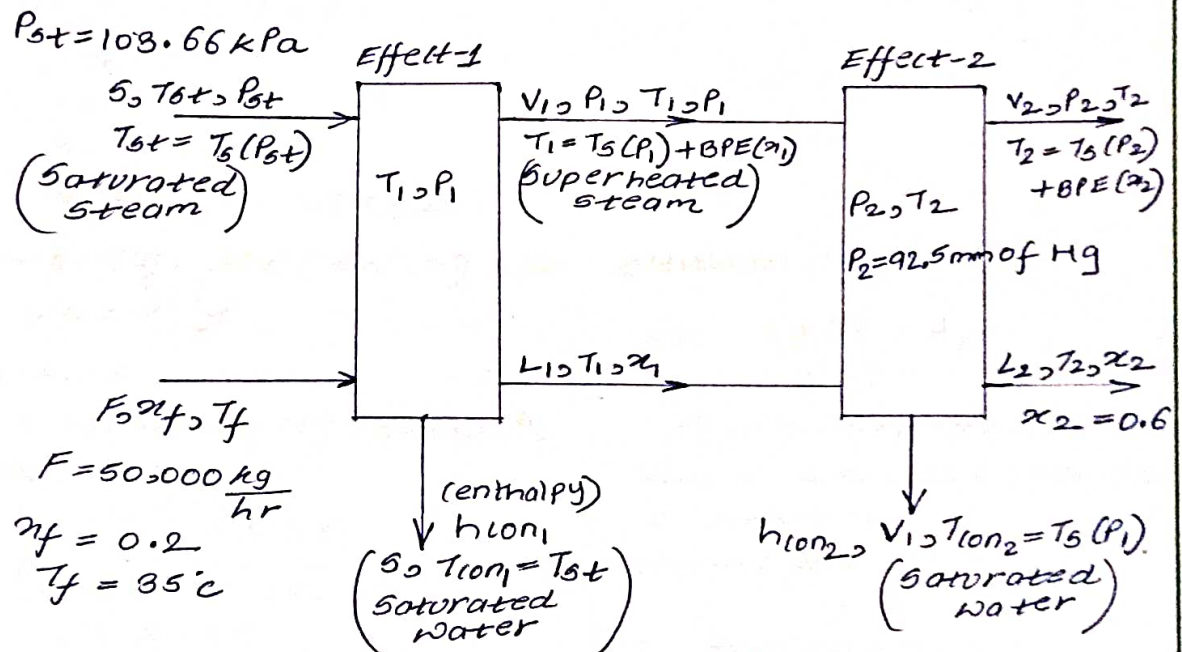 Pst = 103.66 kPa
S, Tst, Pst
Tst = Ts (Pst)
(Saturated
steam)
Effect-1
T1, P1
V1, P1, T1, P1
T1 = Ts (P1) + BPE(x1)
(Superheated
steam)
L1, T1, x1
Effect-2
P2, T2
P2=92.5mm of Hg
V2, P2, T2
T2 = Ts (P2)
+BPE (x2)
L2, T2, x2
x2 = 0.6
F, xf, Tf
F = 50,000 kg/hr
xf = 0.2
Tf = 35°c
(enthalpy)
hcon1
(S, Tcon1 = Tst
Saturated
water)
hcon2, V1, Tcon2 = Ts (P1).
(Saturated
water)